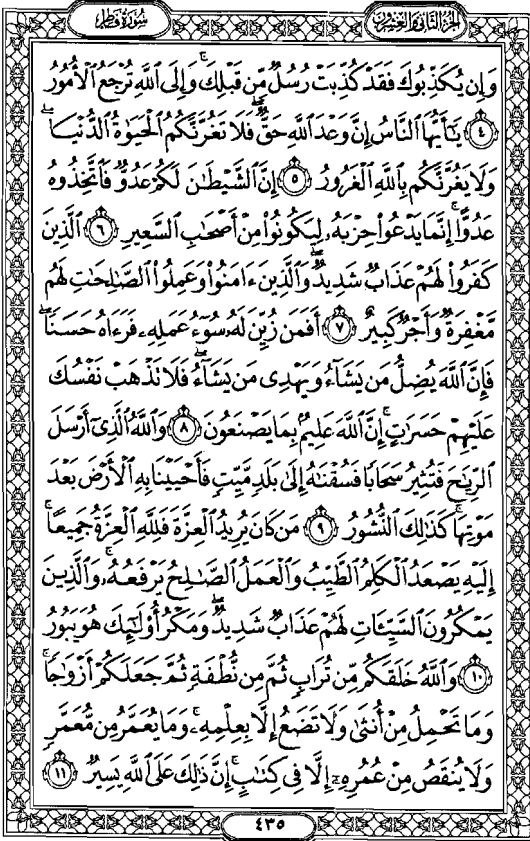 سُورَةُ فَاطِرٍ
الجُزْءُ الثَّانِي وَالعِشْرُونَ
وَإِن يُكَذِّبُوكَ فَقَدْ كُذِّبَتْ رُسُلٌ مِّن قَبْلِكَ ۚ وَإِلَى ٱللَّهِ تُرْجَعُ ٱلْأُمُورُ
٤ يَـٰٓأَيُّهَا ٱلنَّاسُ إِنَّ وَعْدَ ٱللَّهِ حَقٌّ ۖ فَلَا تَغُرَّنَّكُمُ ٱلْحَيَوٰةُ ٱلدُّنْيَا ۖ
وَلَا يَغُرَّنَّكُم بِٱللَّهِ ٱلْغَرُورُ ٥ إِنَّ ٱلشَّيْطَـٰنَ لَكُمْ عَدُوٌّ فَٱتَّخِذُوهُ
عَدُوًّا ۚ إِنَّمَا يَدْعُوا۟ حِزْبَهُۥ لِيَكُونُوا۟ مِنْ أَصْحَـٰبِ ٱلسَّعِيرِ ٦ ٱلَّذِينَ
كَفَرُوا۟ لَهُمْ عَذَابٌ شَدِيدٌ ۖ وَٱلَّذِينَ ءَامَنُوا۟ وَعَمِلُوا۟ ٱلصَّـٰلِحَـٰتِ لَهُم
مَّغْفِرَةٌ وَأَجْرٌ كَبِيرٌ ٧ أَفَمَن زُيِّنَ لَهُۥ سُوٓءُ عَمَلِهِۦ فَرَءَاهُ حَسَنًا ۖ
فَإِنَّ ٱللَّهَ يُضِلُّ مَن يَشَآءُ وَيَهْدِى مَن يَشَآءُ ۖ فَلَا تَذْهَبْ نَفْسُكَ
عَلَيْهِمْ حَسَرَٰتٍ ۚ إِنَّ ٱللَّهَ عَلِيمٌۢ بِمَا يَصْنَعُونَ ٨ وَٱللَّهُ ٱلَّذِىٓ أَرْسَلَ
ٱلرِّيَـٰحَ فَتُثِيرُ سَحَابًا فَسُقْنَـٰهُ إِلَىٰ بَلَدٍ مَّيِّتٍ فَأَحْيَيْنَا بِهِ ٱلْأَرْضَ بَعْدَ
مَوْتِهَا ۚ كَذَٰلِكَ ٱلنُّشُورُ ٩ مَن كَانَ يُرِيدُ ٱلْعِزَّةَ فَلِلَّهِ ٱلْعِزَّةُ جَمِيعًا ۚ
إِلَيْهِ يَصْعَدُ ٱلْكَلِمُ ٱلطَّيِّبُ وَٱلْعَمَلُ ٱلصَّـٰلِحُ يَرْفَعُهُۥ ۚ وَٱلَّذِينَ
يَمْكُرُونَ ٱلسَّيِّـَٔاتِ لَهُمْ عَذَابٌ شَدِيدٌ ۖ وَمَكْرُ أُو۟لَـٰٓئِكَ هُوَ يَبُورُ
١٠ وَٱللَّهُ خَلَقَكُم مِّن تُرَابٍ ثُمَّ مِن نُّطْفَةٍ ثُمَّ جَعَلَكُمْ أَزْوَٰجًا ۚ
وَمَا تَحْمِلُ مِنْ أُنثَىٰ وَلَا تَضَعُ إِلَّا بِعِلْمِهِۦ ۚ وَمَا يُعَمَّرُ مِن مُّعَمَّرٍ
وَلَا يُنقَصُ مِنْ عُمُرِهِۦٓ إِلَّا فِى كِتَـٰبٍ ۚ إِنَّ ذَٰلِكَ عَلَى ٱللَّهِ يَسِيرٌ ١١
٤٣٥